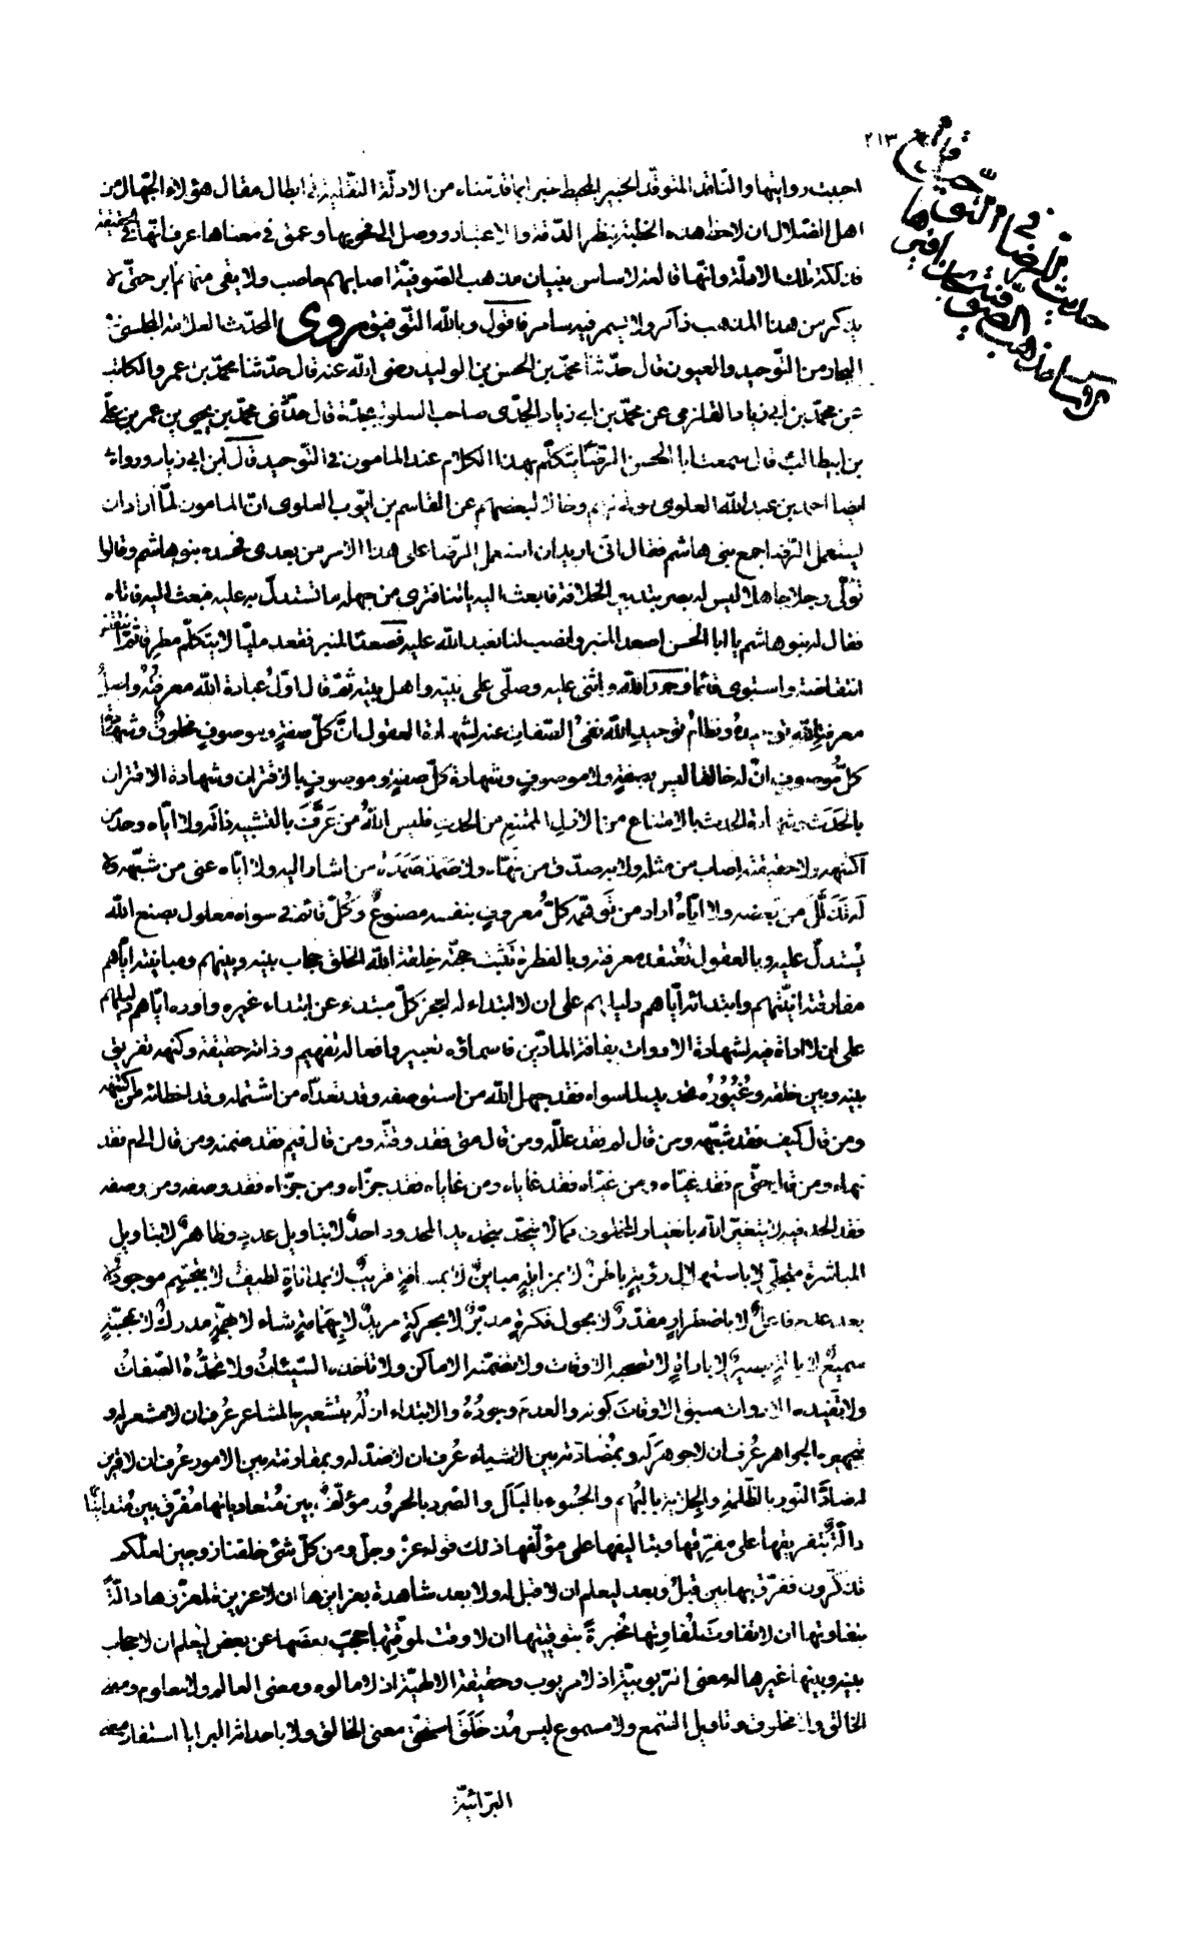 ٢١٣
حديث الرضا في التوحيد
احببت روايتها والناقد المتوقد الخبير المحيط خبرا بما قدمناه من الادلة النقلية في ابطال مقال هؤلاء الجهال من
اهل الضلال ان لاحظ هذه الخطبة بنظر الدقة والاعتبار ووصل الى فحويها وعمق في معناها عرف انها في الحقيقة
فذلكة تلك الادلة وانها قالعة لاساس بنيان مذهب الصوفية اصابهم حاصب ولا بقى منهم ابر حتى لا
يذكر من هذا المذهب ذاكر ولا يسمر فيه سامر فاقول وبالله التوفيق روى المحدث العلامة المجلسي في
البحار من التوحيد والعيون قال حدثنا محمد بن الحسن بن الوليد رضى الله عنه قال حدثنا محمد بن عمرو الكاتب
عن محمد بن ابي زياد القلزمى عن محمد بن ابي زياد الجدى صاحب الصلوة بجدة قال حدثنى محمد بن يحيى بن عمر بن على
بن ابيطالب قال سمعت ابا الحسن الرضا يتكلم بهذا الكلام عند المامون في التوحيد قال ابن ابي زياد ورواه
ايضا احمد بن عبد الله العلوى مولى لهم وخالا لبعضهم عن القاسم بن ايوب العلوى ان المامون لما اراد ان
يستعمل الرضا جمع بنى هاشم فقال انى اريد ان استعمل الرضا على هذا الامر من بعدى فحسده بنو هاشم وقالوا
تولى رجلا جاهلا ليس له بصر بتدبير الخلافة فابعث اليه ياتنا فترى من جهله ما تستدل به عليه فبعث اليه فاتاه
فقال له بنو هاشم يا ابا الحسن اصعد المنبر وانصب لنا علما نعبد الله عليه فصعد المنبر فقعد مليا لا يتكلم مطرقا ثم انتفض
انتفاضة واستوى قائما وحمد الله واثنى عليه وصلى على نبيه واهل بيته ثم قال اول عبادة الله معرفته واصل
معرفة الله توحيده ونظام توحيد الله نفى الصفات عنه لشهادة العقول ان كل صفة وموصوف مخلوق وشهادة
كل موصوف ان له خالقا ليس بصفة ولا موصوف وشهادة كل صفة وموصوف بالاقتران وشهادة الاقتران
بالحدث وشهادة الحدث بالامتناع من الازل الممتنع من الحدث فليس الله من عرف بالتشبيه ذاته ولا اياه وحد من
اكتنهه ولا حقيقته اصاب من مثله ولا به صدق من نهاه ولا صمد صمده من اشار اليه ولا اياه عنى من شبهه ولا
له تذلل من بعضه ولا اياه اراد من توهمه كل معروف بنفسه مصنوع وكل قائم في سواه معلول بصنع الله
يستدل عليه وبالعقول تعتقد معرفته وبالفطرة تثبت حجته خلقة الله الخلق حجاب بينه وبينهم ومباينته اياهم
مفارقته اينيتهم وابتدائه اياهم دليلهم على ان لا ابتداء له لعجز كل مبتدء عن ابتداء غيره وادوه اياهم دليلهم
على ان لا اداة فيه لشهادة الادوات بفاقة المادين فاسماؤه تعبير وافعاله تفهيم وذاته حقيقة وكنهه تفريق
بينه وبين خلقه وغيوره تحديد لما سواه فقد جهل الله من استوصفه وقد تعداه من اشتمله وقد اخطائه من اكتنهه
ومن قال كيف فقد شبهه ومن قال لم فقد علله ومن قال متى فقد وقته ومن قال فيم فقد ضمنه ومن قال الى م فقد
نهاه ومن قال حتى م فقد غياه ومن غياه فقد غاياه ومن غاياه فقد جزاه ومن جزاه فقد وصفه ومن وصفه
فقد الحد فيه لا يتغير الله بانغيار المخلوق كما لا يتحدد بتحديد المحدود احد لا بتاويل عدد وظاهر لا بتاويل
المباشرة متجلى لا باستهلال رؤية باطن لا بمزايلة مباين لا بمسافة قريب لا بمداناة لطيف لا بتجسم موجود لا
بعد عدم فاعل لا باضطرار مقدر لا بحول فكرة مدبر لا بحركة مريد لا بهمامة شاء لا بهمة مدرك لا بمجسة
سميع لا بالة بصير لا باداة لا تصحبه الاوقات ولا تضمنه الاماكن ولا تاخذه السنات ولا تحده الصفات
ولا تقيده الادوات سبق الاوقات كونه والعدم وجوده والابتداء ازله بتشعيره المشاعر عرف ان لا مشعر له و
بتجهيره الجواهر عرف ان لا جوهر له وبمضادته بين الاشياء عرف ان لا ضد له وبمقارنته بين الامور عرف ان لا قرين
له ضاد النور بالظلمة والجلاية بالبهم والجسوء بالبلل والصرد بالحرور مؤلف بين متعادياتها مفرق بين متدانياتها
دالة بتفريقها على مفرقها وبتاليفها على مؤلفها ذلك قوله عز وجل ومن كل شئ خلقنا زوجين لعلكم
تذكرون ففرق بها بين قبل وبعد ليعلم ان لا قبل له ولا بعد شاهدة بغرايزها ان لا غريزة لمغرزها دالة
بتفاوتها ان لا تفاوت لمفاوتها مخبرة بتوقيتها ان لا وقت لموقتها حجب بعضها عن بعض ليعلم ان لا حجاب
بينه وبينها غيرها له معنى الربوبية اذ لا مربوب وحقيقة الالهية اذ لا مالوه ومعنى العالم ولا معلوم ومعنى
الخالق ولا مخلوق وتاويل السمع ولا مسموع ليس مذ خلق استحق معنى الخالق ولا باحداثه البرايا استفاد معنى
البرائية